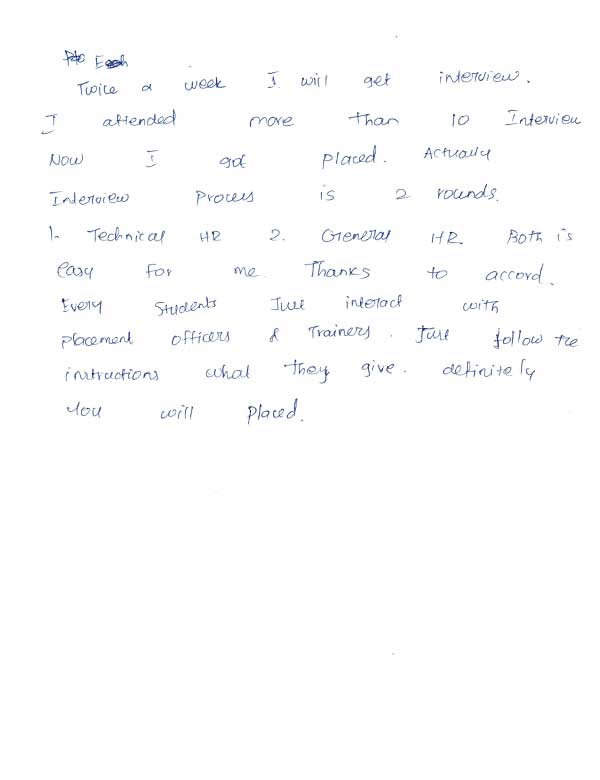 Twice a week I will get interview.
I attended more than 10 Interview
Now I got placed. Actually
Interview Process is 2 rounds.
1. Technical HR 2. General HR. Both is
easy for me. Thanks to accord.
Every Students Just interact with
placement officers & Trainers. Just follow the
instructions what they give. definitely
You will placed.